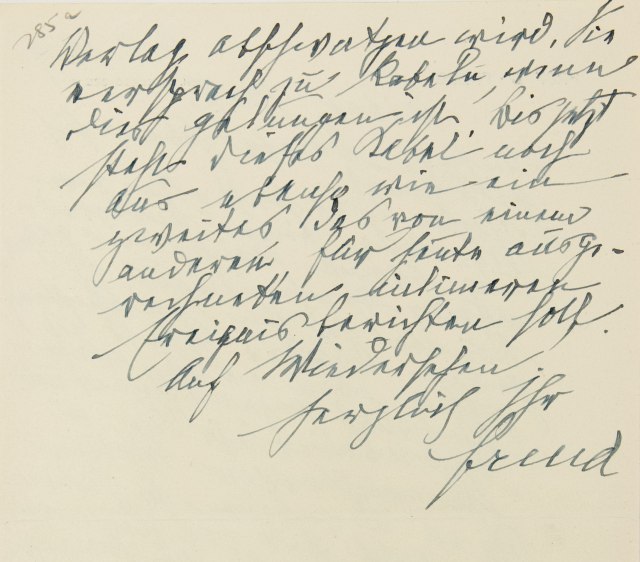 285a
Verlag abschwatzen wird. Sie
versprach zu kabeln, wenn
dies gelungen ist. Bis jetzt
steht dieses Kabel noch
aus ebenso wie ein
zweites das von einem
anderen für heute ausge-
rechneten intimeren
Ereignis berichten soll.
Auf Wiedersehen.
herzlich Ihr
Freud